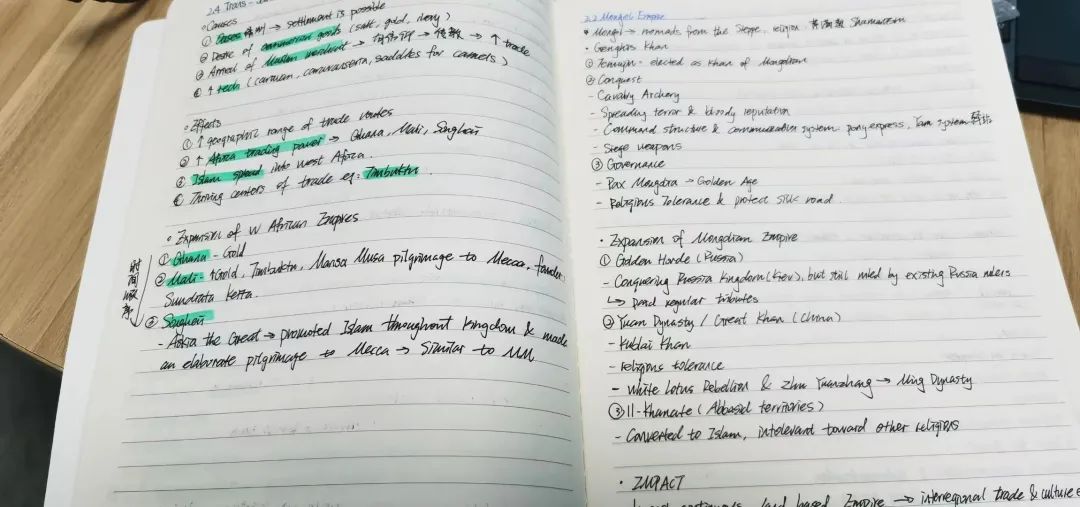 2.4 Trans -
Causes
① Oases 绿洲 → settlement is possible
② Desire of commercial goods (salt, gold, ivory)
③ Arrival of Muslim merchant → → 传教 → ↑ trade
④ ↑ tech (caravan, caravanserria, saddles for camels)
Effects
① ↑ geographic range of trade routes
② ↑ Africa trading power → Ghana, Mali, Songhai
③ Islam spread into west Africa.
④ Thriving centers of trade eg: Timbuktu
Expansion of W African Empires
时间顺序
① Ghana - Gold
② Mali - ↑Gold, Timbuktu, Mansa Musa pilgrimage to Mecca, founder:
Sundiata Keita.
③ Songhai
- Askia the Great → promoted Islam throughout kingdom & made
an elaborate pilgrimage to Mecca → Similar to MM
2.2 Mongol Empire
Mongol → nomads from the Steppe, religion: 萨满教 Shamanism
Genghis Khan
① Temujin - elected as Khan of Mongolian
② Conquest
- Cavalry Archery
- Spreading terror & bloody reputation
- Command structure & communication system: pony express, Yam system 驿站
- Siege weapons
③ Governance
- Pax Mongolia → Golden Age
- Religious Tolerance & protect silk road.
Expansion of Mongolian Empire
① Golden Horde (Russia)
- Conquering Russia kingdom (Kiev), but still ruled by existing Russia rulers
↳ paid regular tributes
② Yuan Dynasty / Great Khan (China)
- Kublai Khan
- religious tolerance
- White Lotus Rebellion & Zhu Yuanzhang → Ming Dynasty
③ Il-Khanate (Abbasid territories)
- Converted to Islam, intolerant toward other religions
IMPACT
land based Empire → interregional trade & culture